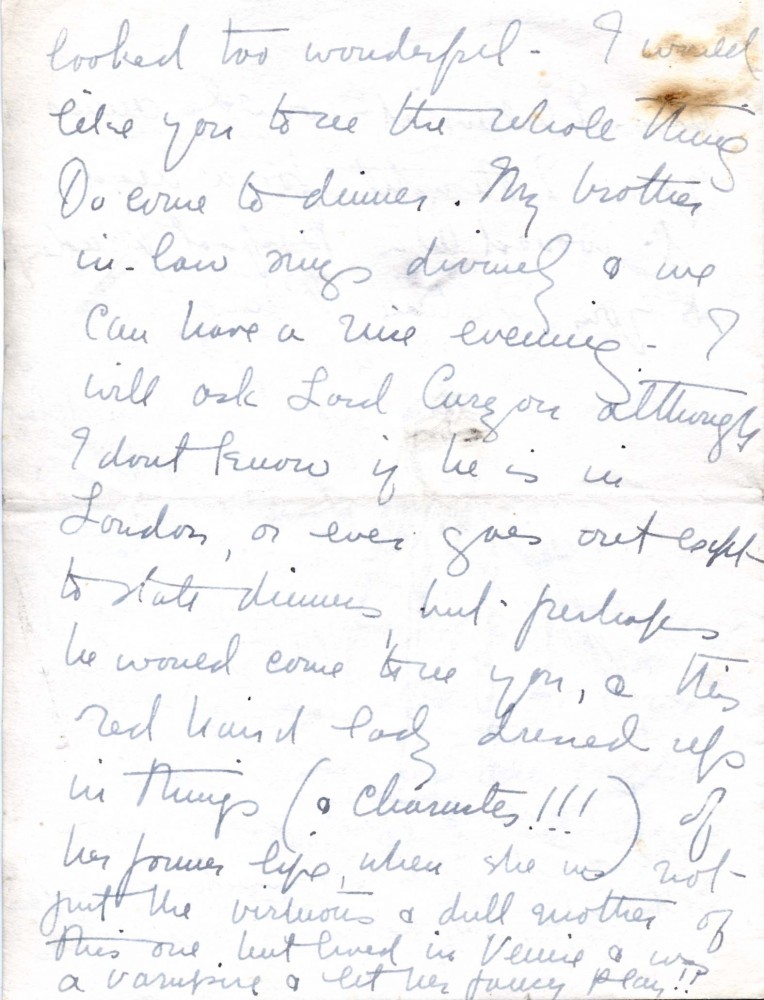 looked too wonderful - I would
like you to see the whole thing
Do come to dinner. My brother
in-law sings divinely & we
can have a nice evening - I
will ask Lord Curzon although
I dont know if he is in
London, or ever goes out except
to state dinners, but perhaps
he would come to see you, & this
red haird lady dressed up
in things (& !!!) of
her former life, when she was not
just the virtuous & dull mother of
this one but lived in Venice & was
a vampire & let her fancy play!!